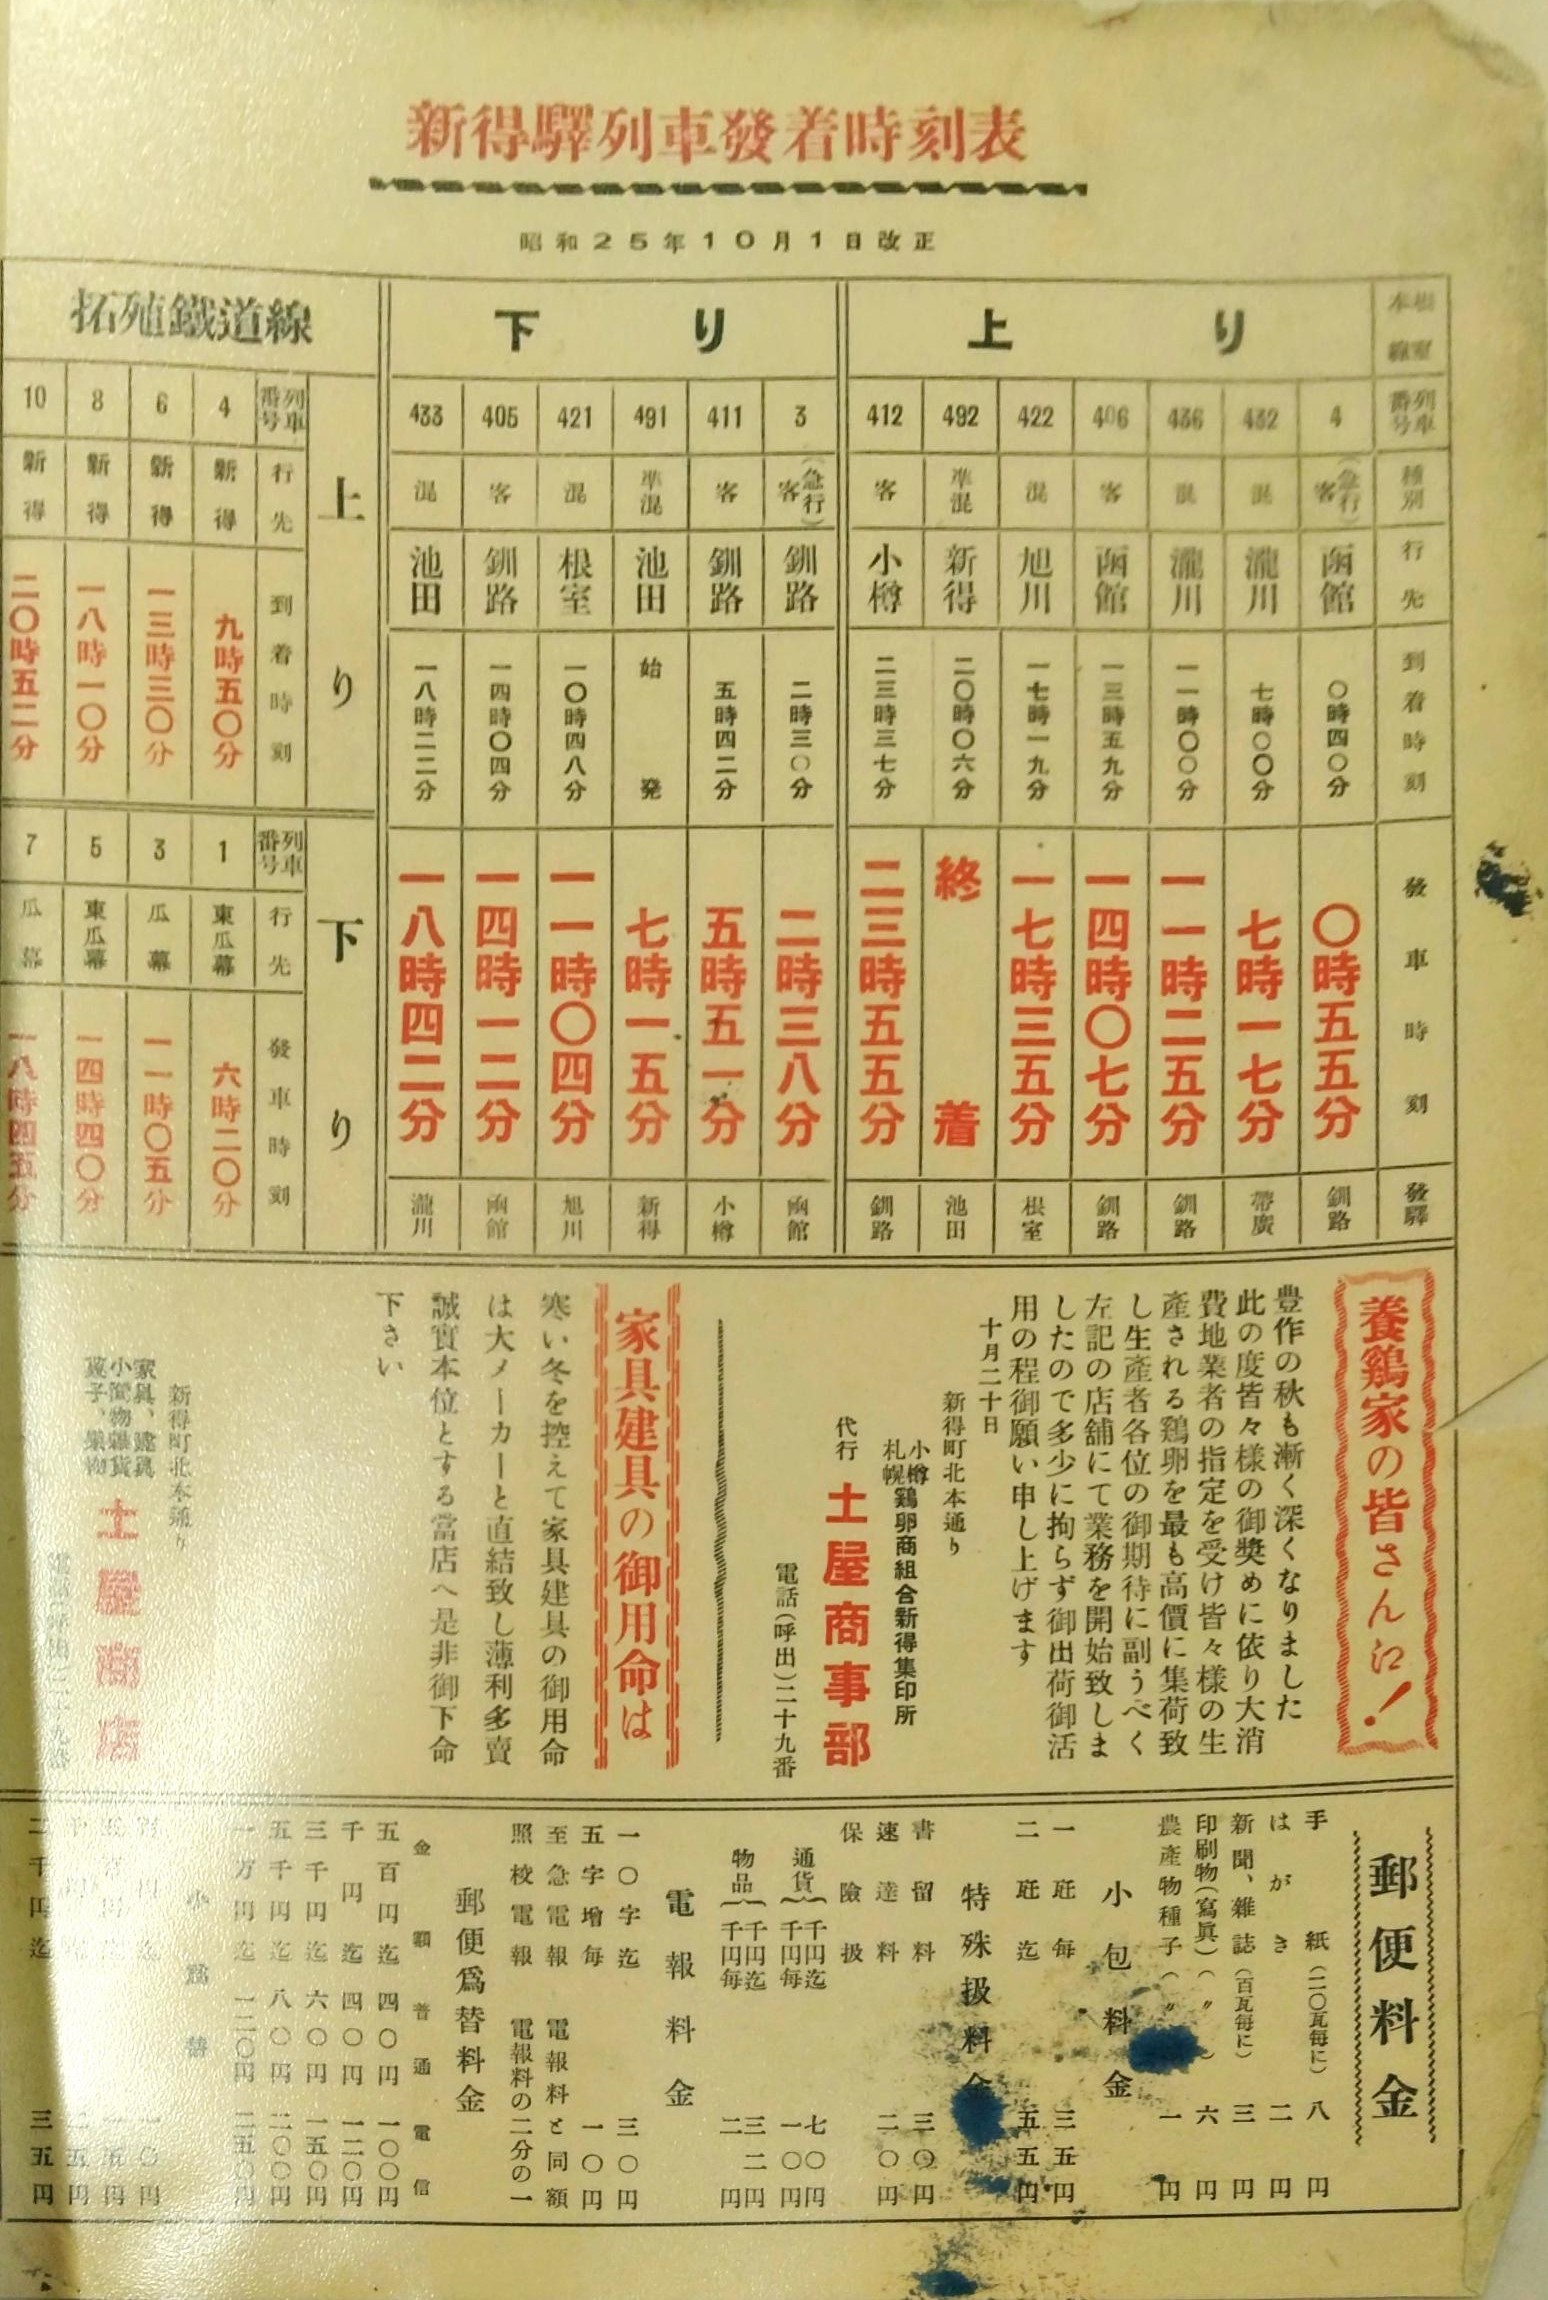 新得驛列車發着時刻表
昭和25年10月1日改正
根室本線
上り
下り
列車番号 種別 行先 到着時刻 發車時刻 發驛
4 客(急行) 函館 〇時四〇分 〇時五五分 釧路
432 混 瀧川 七時〇〇分 七時一七分 帶廣
436 混 瀧川 一一時〇〇分 一一時二五分 釧路
406 客 函館 一三時五九分 一四時〇七分 釧路
422 混 旭川 一七時一九分 一七時三五分 根室
492 準混 新得 二〇時〇六分 終着 池田
412 客 小樽 二三時三七分 二三時五五分 釧路
3 客(急行) 釧路 二時三〇分 二時三八分 函館
411 客 釧路 五時四二分 五時五一分 小樽
491 準混 池田 始発 七時一五分 新得
421 混 根室 一〇時四八分 一一時〇四分 旭川
405 客 釧路 一四時〇四分 一四時一二分 函館
433 混 池田 一八時二二分 一八時四二分 瀧川
拓殖鐵道線
上り
列車番号 行先 到着時刻
4 新得 九時五〇分
6 新得 一三時三〇分
8 新得 一八時一〇分
10 新得 二〇時五二分
下り
列車番号 行先 發車時刻
1 東瓜幕 六時二〇分
3 瓜幕 一一時〇五分
5 東瓜幕 一四時四〇分
7 瓜幕 一八時四五分
養鶏家の皆さん江!
豊作の秋も漸く深くなりました
此の度皆々樣の御奬めに依り大消
費地業者の指定を受け皆々樣の生
產される鶏卵を最も高價に集荷致
し生產者各位の御期待に副うべく
左記の店舗にて業務を開始致しま
したので多少に拘らず御出荷御活
用の程御願い申し上げます
十月二十日
新得町北本通り
小樽
札幌
鶏卵商組合新得集印所
代行 土屋商事部
電話(呼出)二十九番
家具建具の御用命は
寒い冬を控えて家具建具の御用命
は大メーカーと直結致し薄利多賣
誠實本位とする當店へ是非御下命
下さい
新得町北本通り
家具、建具
小間物雜貨
菓子、果物
土屋商店
郵便料金
手紙(二〇瓦每に) 八円
はがき 二円
新聞、雜誌(百瓦每に) 三円
印刷物(寫眞)(〃) 六円
農產物種子(〃 一円
小包料金
一瓩每 三五円
二瓩迄 五五円
特殊扱料金
書留料 三〇円
速達料 二〇円
保險扱
通貨{千円迄 七〇円
千円每 一〇円
物品{千円迄 三二円
千円每 二円
電報料金
一〇字迄 三〇円
五字增每 一〇円
至急電報 電報料と同額
照校電報 電報料の二分の一
郵便爲替料金
金額 普通 電信
五百円迄 四〇円 一〇〇円
千円迄 四〇円 一二〇円
三千円迄 六〇円 一五〇円
五千円迄 八〇円 二〇〇円
一万円迄 一二〇円 二五〇円
小爲替
二千円迄 三五円